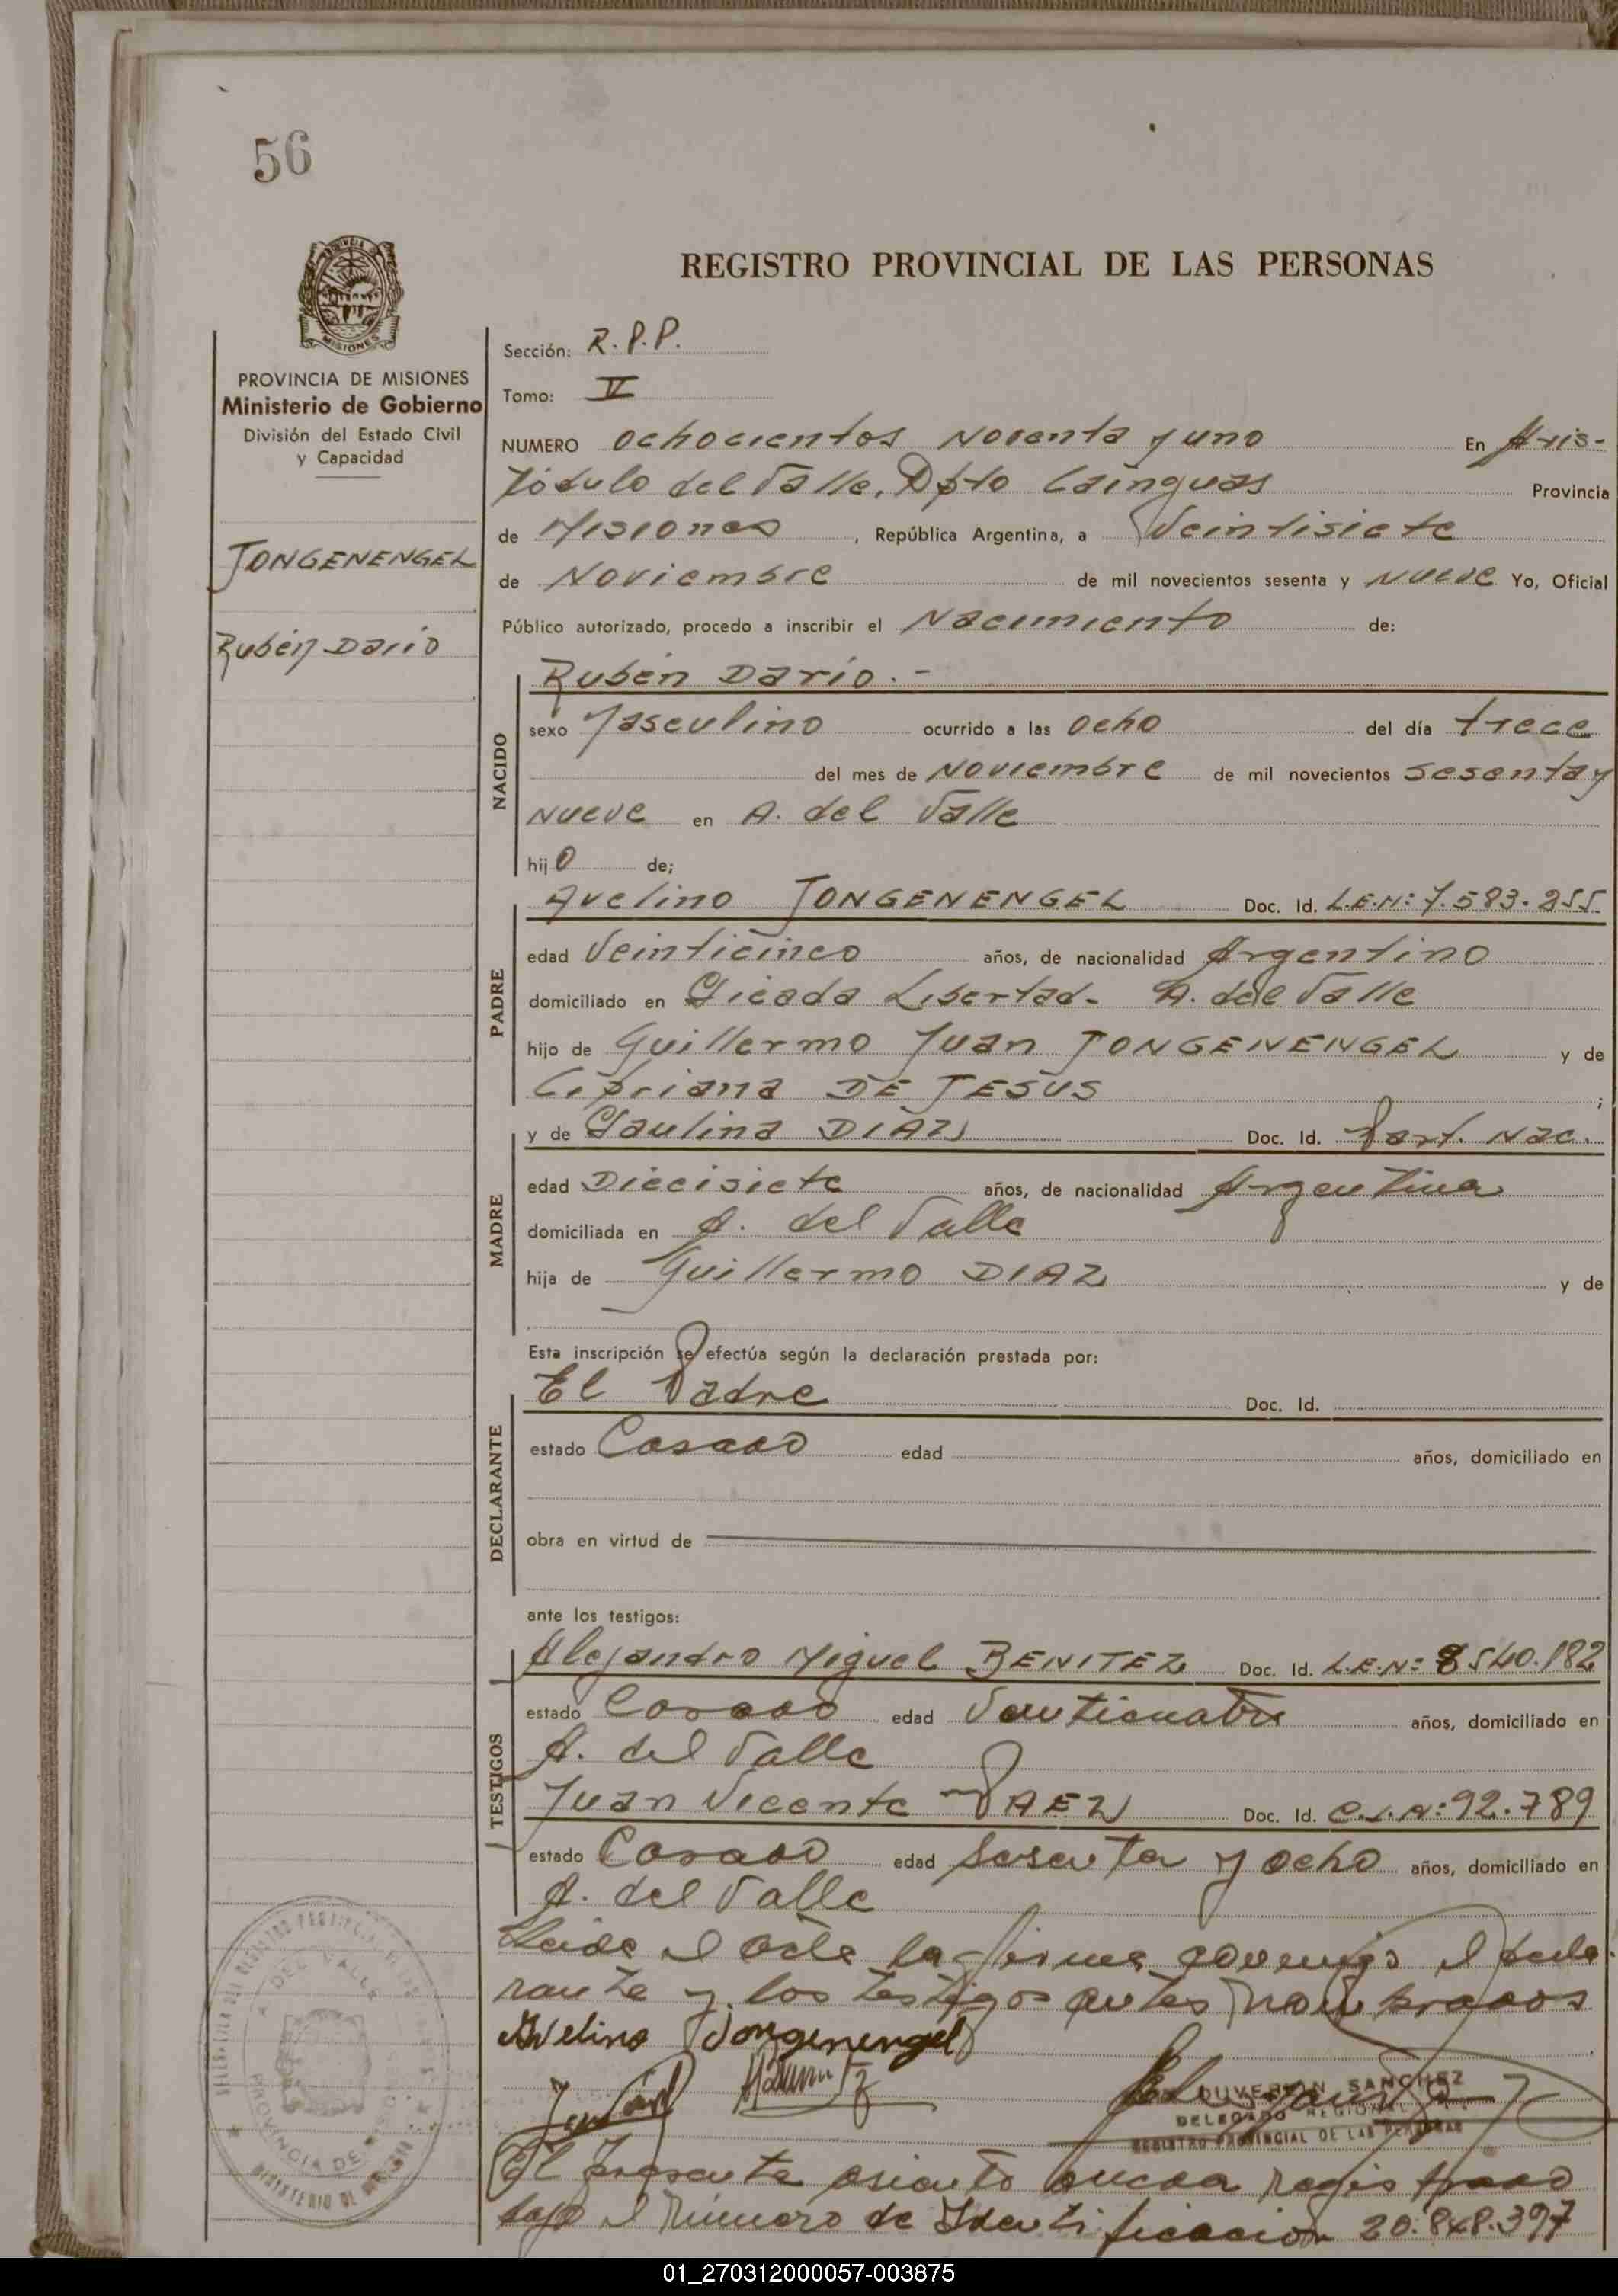 56
REGISTRO PROVINCIAL DE LAS PERSONAS
MISIONES
PROVINCIA DE MISIONES
Ministerio de Gobierno
División del Estado Civil
y Capacidad
JONGENENGEL
Rubén Dario
Sección: R.P.P.
Tomo: V
NUMERO ochocientos Noventa y uno En Aris-
tóbulo del Valle, Dpto Cainguas Provincia
de Misiones, República Argentina, a Veintisiete
de Noviembre de mil novecientos sesenta y Nueve Yo, Oficial
Público autorizado, procedo a inscribir el Nacimiento de:
NACIDO
Rubén Darío.-
sexo Masculino ocurrido a las ocho del día trece
del mes de Noviembre de mil novecientos sesenta y
Nueve en A. del Valle
hijo de;
PADRE
Avelino JONGENENGEL Doc. Id. L.E.N: 7.583.255
edad Veinticinco años, de nacionalidad Argentino
domiciliado en Picada Libertad- A. del Valle
hijo de Guillermo Juan JONGENENGEL y de
Cipriana DE JESUS ;
MADRE
y de Paulina DIAZ Doc. Id. Part. Nac.
edad Diecisiete años, de nacionalidad Argentina
domiciliada en A. del Valle
hija de Guillermo DIAZ y de
Esta inscripción se efectúa según la declaración prestada por:
DECLARANTE
El Padre Doc. Id.
estado Casado edad años, domiciliado en
obra en virtud de
ante los testigos:
TESTIGOS
Alejandro Miguel BENITEZ Doc. Id. L.E.N: 8540.182
estado Casado edad Veinticuatro años, domiciliado en
A. del Valle
Juan Vicente PAEZ Doc. Id. C.I.N: 92.789
estado Casado edad Sesenta y ocho años, domiciliado en
A. del Valle
Leida el Acta la firma conmigo el decla-
rante y los testigos antes nombrados
Avelino Jongenengel
DUVERLAN SANCHEZ
DELEGADO REGIONAL
REGISTRO PROVINCIAL DE LAS PERSONAS
El presente asiento queda registrado
bajo el Número de Identificación 20.848.397
DEL VALLE
PROVINCIA DE MISIONES
MINISTERIO DE GOBIERNO
01_270312000057-003875